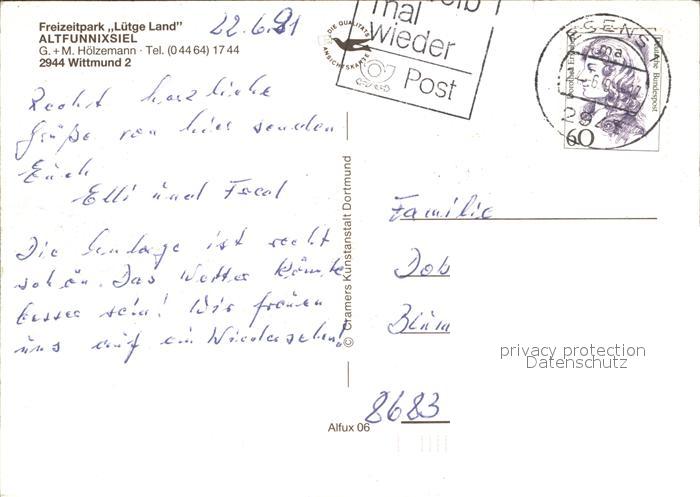 Freizeitpark „Lütge Land"
ALTFUNNIXSIEL
G. + M. Hölzemann · Tel. (0 44 64) 17 44
2944 Wittmund 2
22.6.91
DIE QUALITÄTS
ANSICHTSKARTE
mal
wieder
Post
ESENS
Deutsche Bundespost
60
Recht herzliche
Grüße von hier senden
Euch
Elli und Fred
Die Anlage ist recht
schön. Das Wetter könnte
besser sein! Wir freuen
uns auf ein Wiedersehen!
© Cramers Kunstanstalt Dortmund
Familie
Dob
Blüm
privacy protection
Datenschutz
8683
Alfux 06